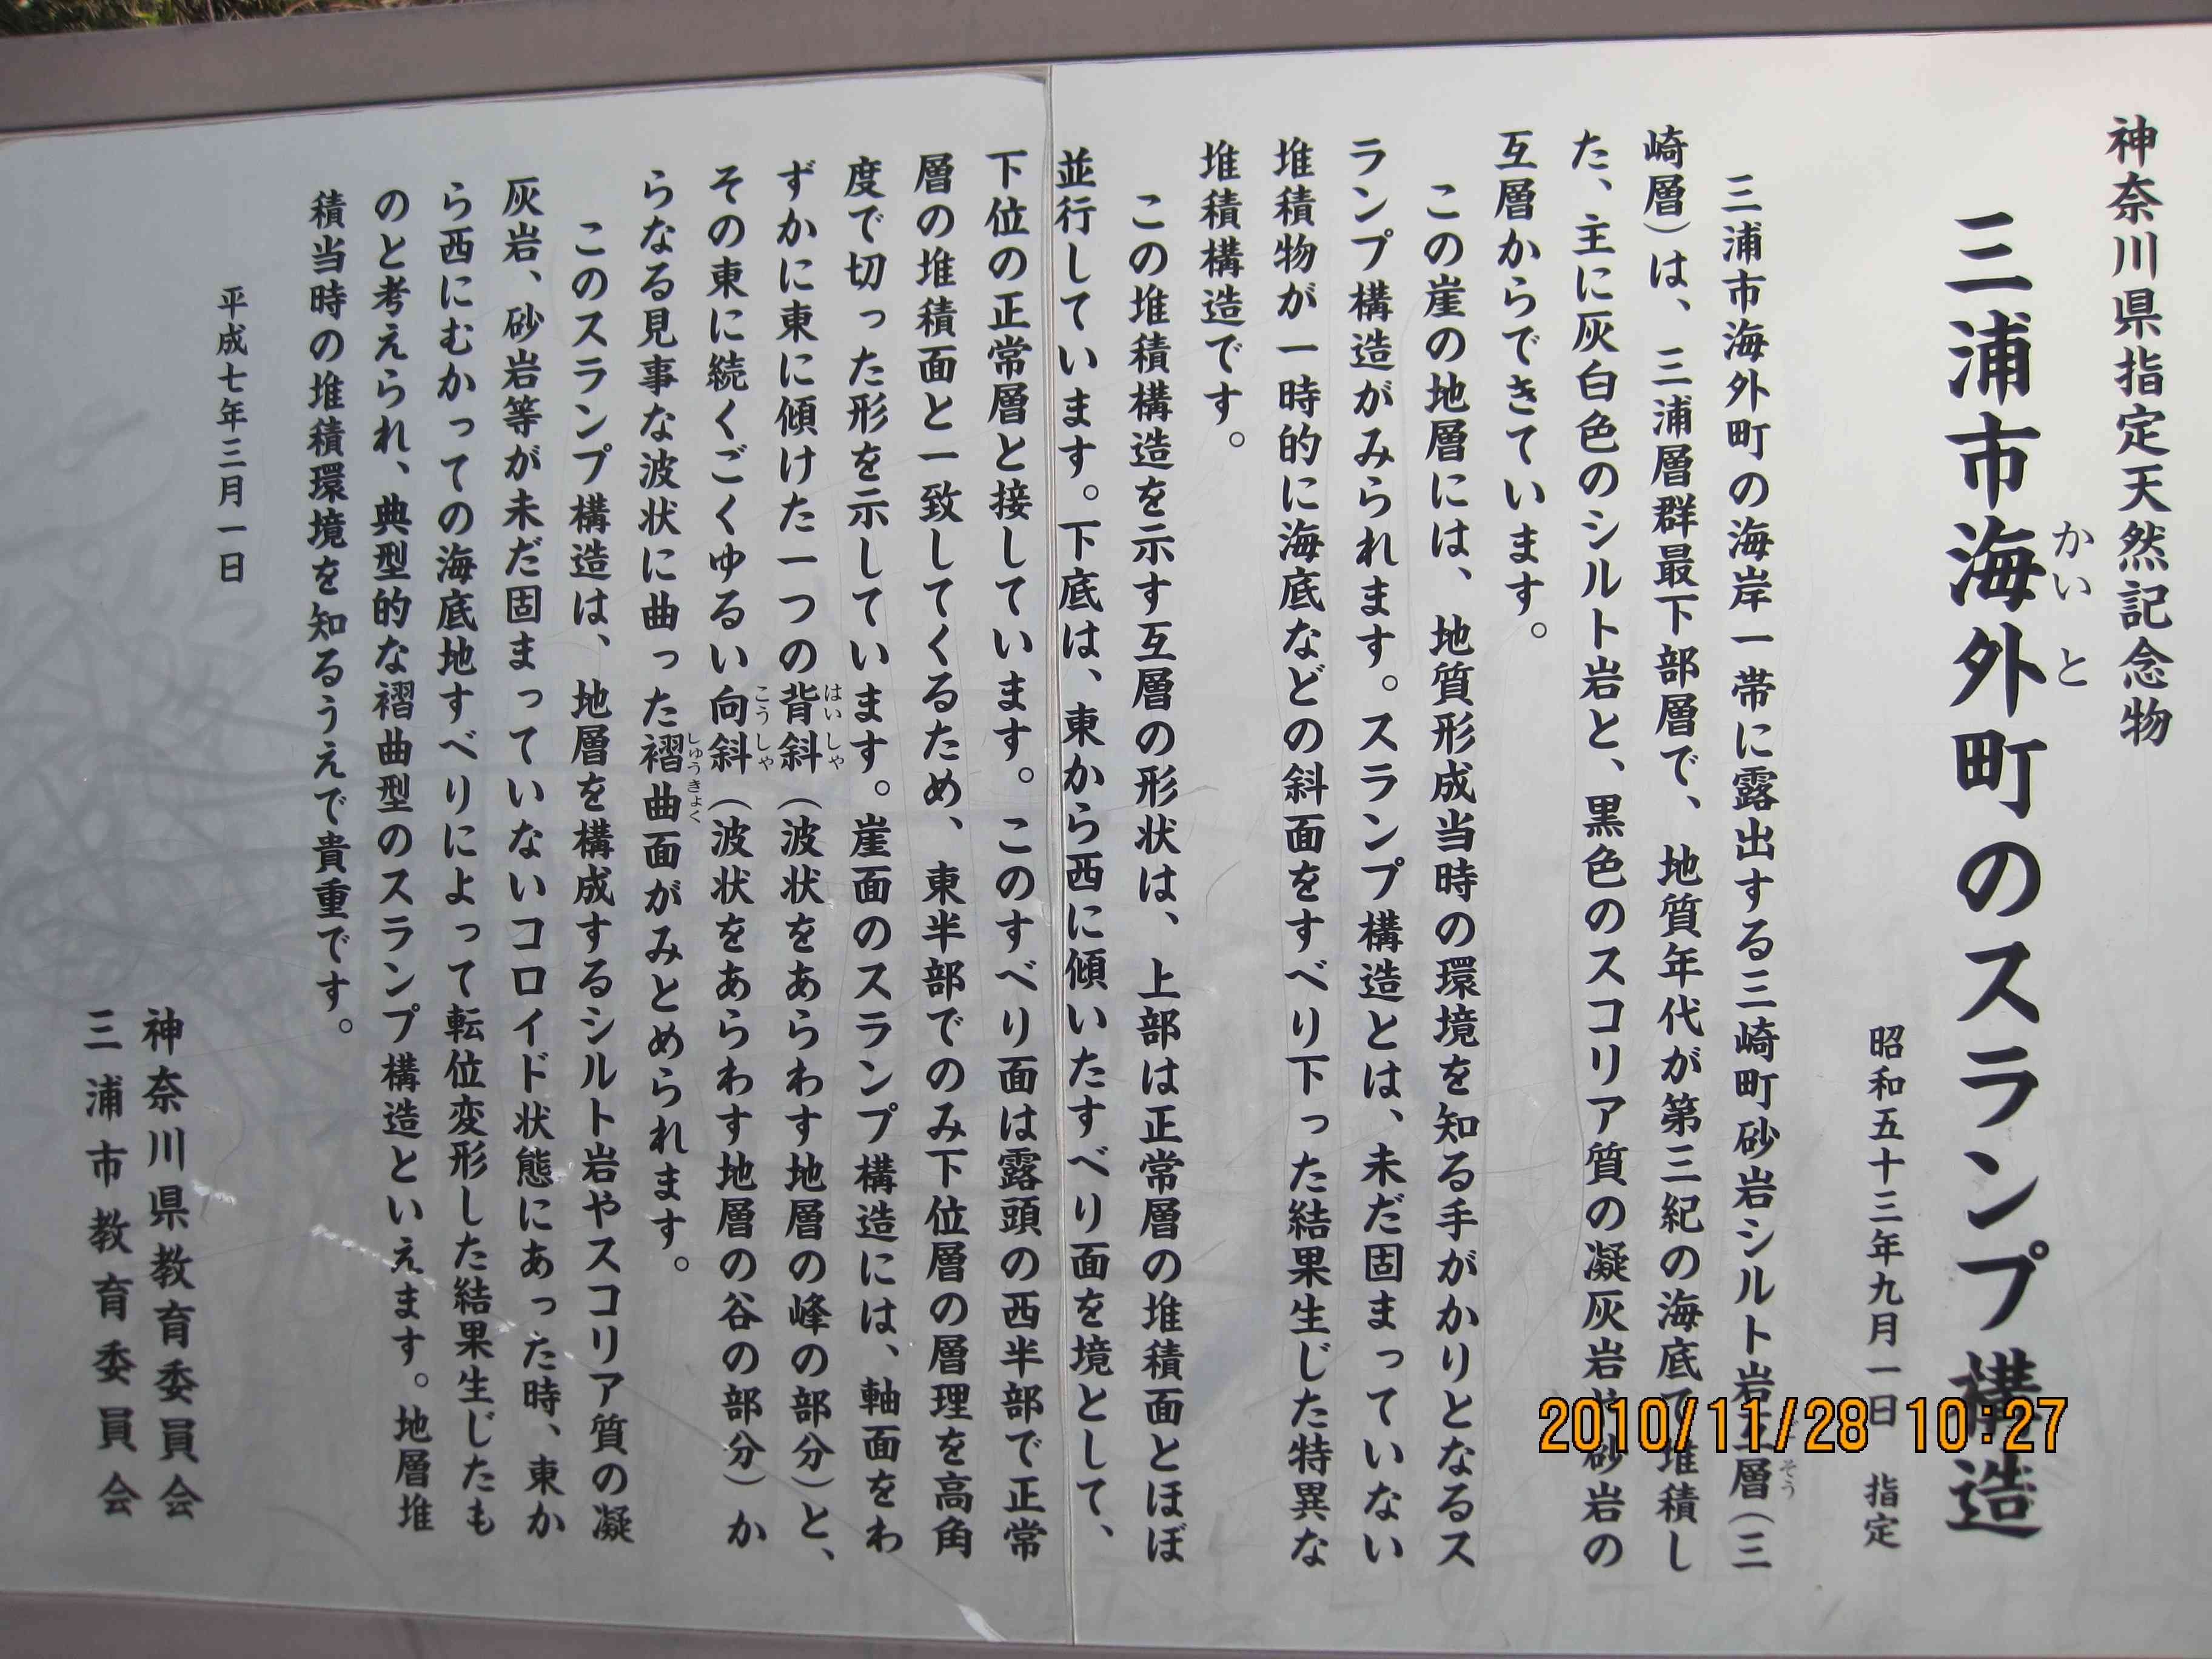 神奈川県指定天然記念物
三浦市海外町のスランプ構造
かいと
昭和五十三年九月一日 指定
三浦市海外町の海岸一帯に露出する三崎町砂岩シルト岩互層（三
そう
崎層）は、三浦層群最下部層で、地質年代が第三紀の海底で堆積し
た、主に灰白色のシルト岩と、黒色のスコリア質の凝灰岩 砂岩の
互層からできています。
この崖の地層には、地質形成当時の環境を知る手がかりとなるス
ランプ構造がみられます。スランプ構造とは、未だ固まっていない
堆積物が一時的に海底などの斜面をすべり下った結果生じた特異な
堆積構造です。
この堆積構造を示す互層の形状は、上部は正常層の堆積面とほぼ
並行しています。下底は、東から西に傾いたすべり面を境として、
下位の正常層と接しています。このすべり面は露頭の西半部で正常
層の堆積面と一致してくるため、東半部でのみ下位層の層理を高角
度で切った形を示しています。崖面のスランプ構造には、軸面をわ
ずかに東に傾けた一つの背斜（波状をあらわす地層の峰の部分）と、
はいしゃ
その東に続くごくゆるい向斜（波状をあらわす地層の谷の部分）か
こうしゃ
らなる見事な波状に曲った褶曲面がみとめられます。
しゅうきょく
このスランプ構造は、地層を構成するシルト岩やスコリア質の凝
灰岩、砂岩等が未だ固まっていないコロイド状態にあった時、東か
ら西にむかっての海底地すべりによって転位変形した結果生じたも
のと考えられ、典型的な褶曲型のスランプ構造といえます。地層堆
積当時の堆積環境を知るうえで貴重です。
平成七年三月一日
神奈川県教育委員会
三浦市教育委員会
2010/11/28 10:27